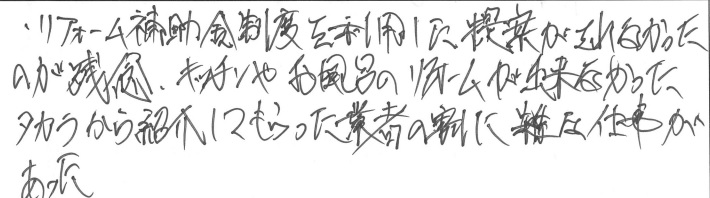 ・リフォーム補助金制度を利用した提案が無かった
のが残念、キッチンやお風呂のリフォームが出来なかった
タカラから紹介してもらった業者の割に雑な仕事が
あった